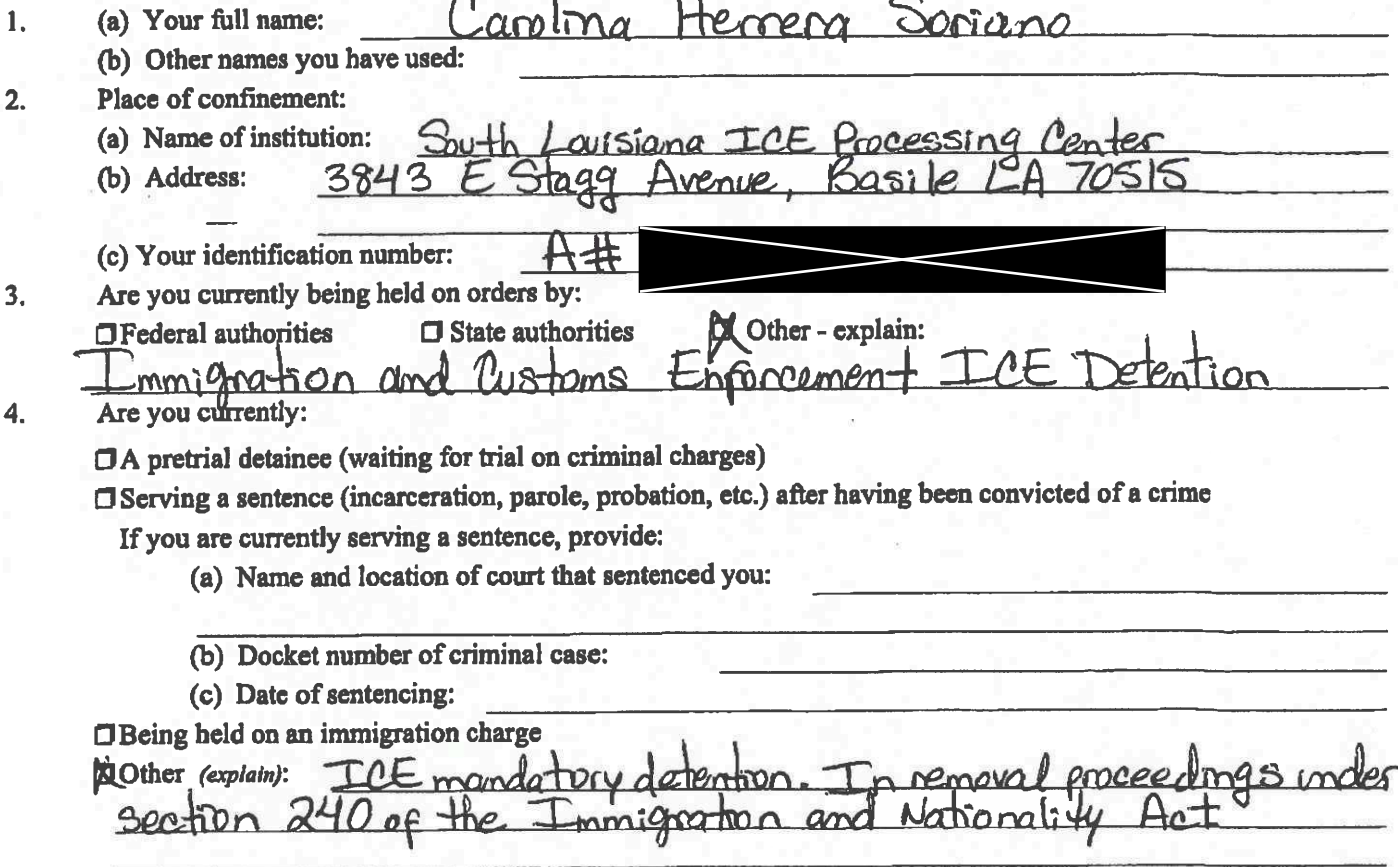 1. (a) Your full name: Carolina Herrera Soriano
(b) Other names you have used:
2. Place of confinement:
(a) Name of institution: South Louisiana ICE Processing Center
(b) Address: 3843 E Stagg Avenue, Basile LA 70515
(c) Your identification number: A#
3. Are you currently being held on orders by:
☐Federal authorities ☐ State authorities ☒ Other - explain:
Immigration and Customs Enforcement ICE Detention
4. Are you currently:
☐A pretrial detainee (waiting for trial on criminal charges)
☐Serving a sentence (incarceration, parole, probation, etc.) after having been convicted of a crime
If you are currently serving a sentence, provide:
(a) Name and location of court that sentenced you:
(b) Docket number of criminal case:
(c) Date of sentencing:
☐Being held on an immigration charge
☒Other (explain): ICE mandatory detention. In removal proceedings under
section 240 of the Immigration and Nationality Act